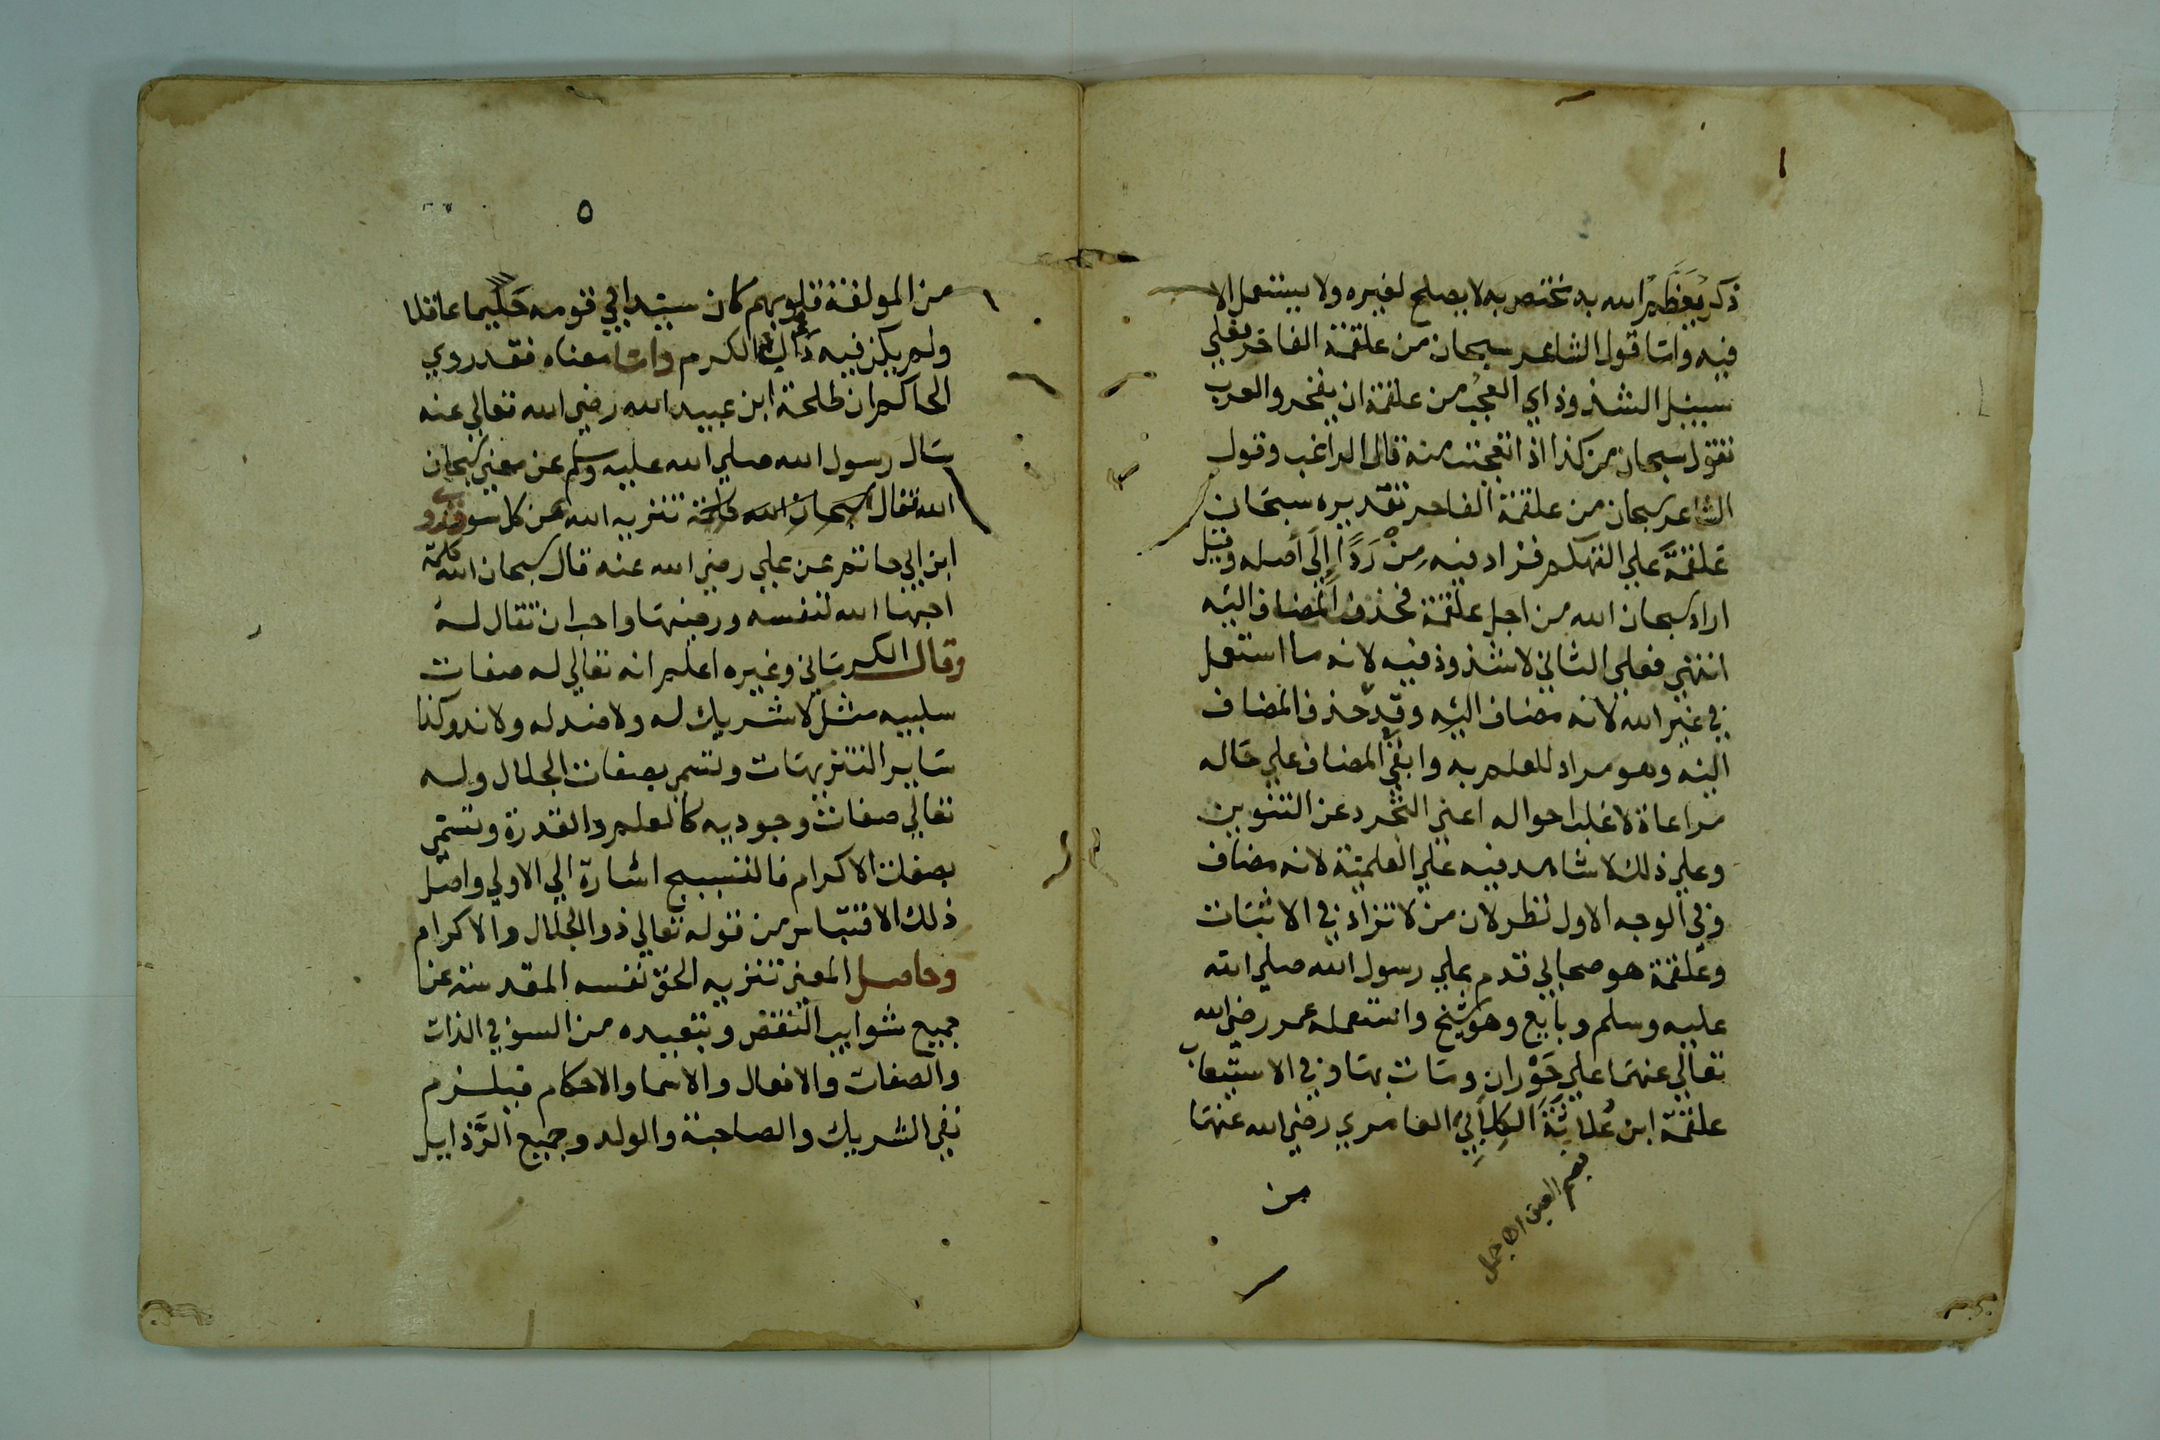 ذكر يُعَظَّمُ الله به مختص به لا يصلح لغيره ولا يستعمل الا
فيه واما قول الشاعر سبحان من علقمة الفاخر فعلي
سبيل الشذوذ اي العجب من علقمة ان يفخر والعرب
تقول سبحان من كذا اذا تعجبت منه قال الراغب وقول
الشاعر سبحان من علقمة الفاخر تقديره سبحان
علقمة علي التهكم فزاد فيه مِنْ رَدًّا إِلَى أصله وقيل
اراد سبحان الله من اجل علقمة فحذف المضاف اليه
انتهي فعلي الثاني لا شذوذ فيه لانه ما استعمل
في غير الله لانه مضاف اليه وقد حذف المضاف
اليه وهو مراد للعلم به وابقي المضاف علي حاله
مراعاة لاغلب احواله اعني التجرد عن التنوين
وعلي ذلك لا شاهد فيه علي العلمية لانه مضاف
وفي الوجه الاول نظر لان من لا تزاد في الاثبات
وعلقمة هو صحابي قدم علي رسول الله صلي الله
عليه وسلم وبايع وهو شيخ واستعمله عمر رضي الله
تعالي عنهما علي حَوْران ومات بها وفي الاستيعاب
علقمة ابن عُلَاثَةَ الكِلَابِيُّ العامري رضي الله عنهما
بضم العين
من
٥
من المولفة قلوبهم كان سيدا في قومه حَليما عاقلا
ولم يكن فيه ذاك الكرم واما معناه فقد روي
الحاكم ان طلحة ابن عبيد الله رضي الله تعالي عنه
سال رسول الله صلي الله عليه وسلم عن معني سبحان
الله فقال سبحان الله كلمة تنزيه الله عن كل سو وروي
ابن ابي حاتم عن علي رضي الله عنه قال سبحان الله كلمة
احبها الله لنفسه ورضيها واحب ان تقال له
وقال الكرماني وغيره اعلم انه تعالي له صفات
سلبيه مثل لا شريك له ولا ضد له ولا ند وكذا
ساير التنزيهات وتسمي بصفات الجلال وله
تعالي صفات وجوديه كالعلم والقدرة وتسمي
بصفات الاكرام فالتسبيح اشارة الي الاولي واصل
ذلك الاقتباس من قوله تعالي ذو الجلال والاكرام
وحاصل المعني تنزيه الحق نفسه المقدسة عن
جميع شوايب النقص وتبعيده من السو في الذات
والصفات والافعال والاسما والاحكام فيلزم
نفي الشريك والصاحبة والولد وجميع الرَّذايل